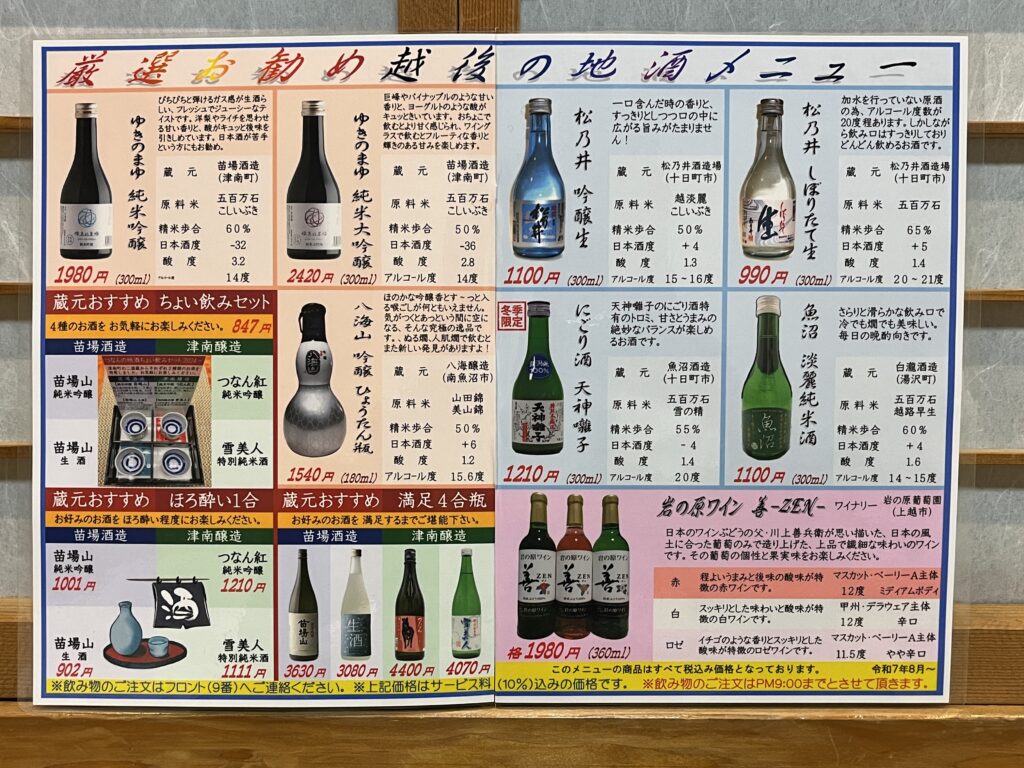 厳選お勧め越後の地酒メニュー
ゆきのまゆ 純米吟醸
ぴちぴちと弾けるガス感が生酒ら
しい、フレッシュでジューシーなテ
イストです。洋梨やライチを思わせ
る甘い香りと、酸がキュッと後味を
引きしめています。日本酒が苦手
という方にもお勧め。
蔵元 苗場酒造
(津南町)
原料米 五百万石
こしいぶき
精米歩合 60%
日本酒度 -32
酸度 3.2
アルコール度 14度
1980円 (300ml)
ゆきのまゆ 純米大吟醸
巨峰やパイナップルのような甘い
香りと、ヨーグルトのような酸が
キュッときいています。おちょこで
飲むとより甘く感じられ、ワイング
ラスで飲むとフルーティな香りと
輝きのある甘みを楽しめます。
蔵元 苗場酒造
(津南町)
原料米 五百万石
こしいぶき
精米歩合 50%
日本酒度 -36
酸度 2.8
アルコール度 14度
2420円 (300ml)
松乃井 吟醸生
一口含んだ時の香りと、
すっきりとしつつ口の中に
広がる旨みがたまりませ
ん!
蔵元 松乃井酒造場
(十日町市)
原料米 越淡麗
こしいぶき
精米歩合 50%
日本酒度 +4
酸度 1.3
アルコール度 15~16度
1100円 (300ml)
松乃井 しぼりたて生
加水を行っていない原酒
の為、アルコール度数が
20度程あります。しかしなが
ら飲み口はすっきりしており
どんどん飲めるお酒です。
蔵元 松乃井酒造場
(十日町市)
原料米 五百万石
精米歩合 65%
日本酒度 +5
酸度 1.4
アルコール度 20~21度
990円 (300ml)
蔵元おすすめ ちょい飲みセット
4種のお酒をお気軽にお楽しみください。 847円
苗場酒造 津南醸造
苗場山
純米吟醸
つなん紅
純米吟醸
苗場山
生酒
雪美人
特別純米酒
八海山 吟醸 ひょうたん瓶
ほのかな吟醸香とす~っと入
る喉ごしが何ともいえません。
気がつくとあっという間に空に
なる、そんな究極の逸品で
す。、ぬる燗、人肌燗で飲むと
また新しい発見がありますよ!
蔵元 八海醸造
(南魚沼市)
原料米 山田錦
美山錦
精米歩合 50%
日本酒度 +6
酸度 1.2
アルコール度 15.6度
1540円 (180ml)
冬季
限定
にごり酒 天神囃子
天神囃子のにごり酒特
有のトロミ、甘さとうまみの
絶妙なバランスが楽しめ
るお酒です。
蔵元 魚沼酒造
(十日町市)
原料米 五百万石
雪の精
精米歩合 55%
日本酒度 -4
酸度 1.4
アルコール度 20度
1210円 (300ml)
魚沼 淡麗純米酒
さらりと滑らかな飲み口で
冷でも燗でも美味しい。
毎日の晩酌向きです。
蔵元 白瀧酒造
(湯沢町)
原料米 五百万石
越路早生
精米歩合 60%
日本酒度 +4
酸度 1.6
アルコール度 14~15度
1100円 (300ml)
蔵元おすすめ ほろ酔い1合
お好みのお酒をほろ酔い程度にお楽しみください。
苗場酒造 津南醸造
苗場山
純米吟醸
1001円
つなん紅
純米吟醸
1210円
酒
苗場山
生酒
902円
雪美人
特別純米酒
1111円
蔵元おすすめ 満足4合瓶
お好みのお酒を満足するまでご堪能下さい。
苗場酒造 津南醸造
3630円 3080円 4400円 4070円
岩の原ワイン 善-ZEN- ワイナリー 岩の原葡萄園
(上越市)
日本のワインぶどうの父・川上善兵衛が思い描いた、日本の風
土に合った葡萄のみで造り上げた、上品で繊細な味わいのワイン
です。その葡萄の個性と果実味をお楽しみください。
赤 程よいうまみと後味の酸味が特
徴の赤ワインです。
マスカット・ベーリーA主体
12度 ミディアムボディ
白 スッキリとした味わいと酸味が特
徴の白ワインです。
甲州・デラウェア主体
12度 辛口
ロゼ イチゴのような香りとスッキリとした
酸味が特徴のロゼワインです。
マスカット・ベーリーA主体
11.5度 やや辛口
各1980円 (360ml)
このメニューの商品はすべて税込み価格となっております。 令和7年8月~
※飲み物のご注文はフロント(9番)へご連絡ください。 ※上記価格はサービス料(10%)込みの価格です。 ※飲み物のご注文はPM9:00までとさせて頂きます。